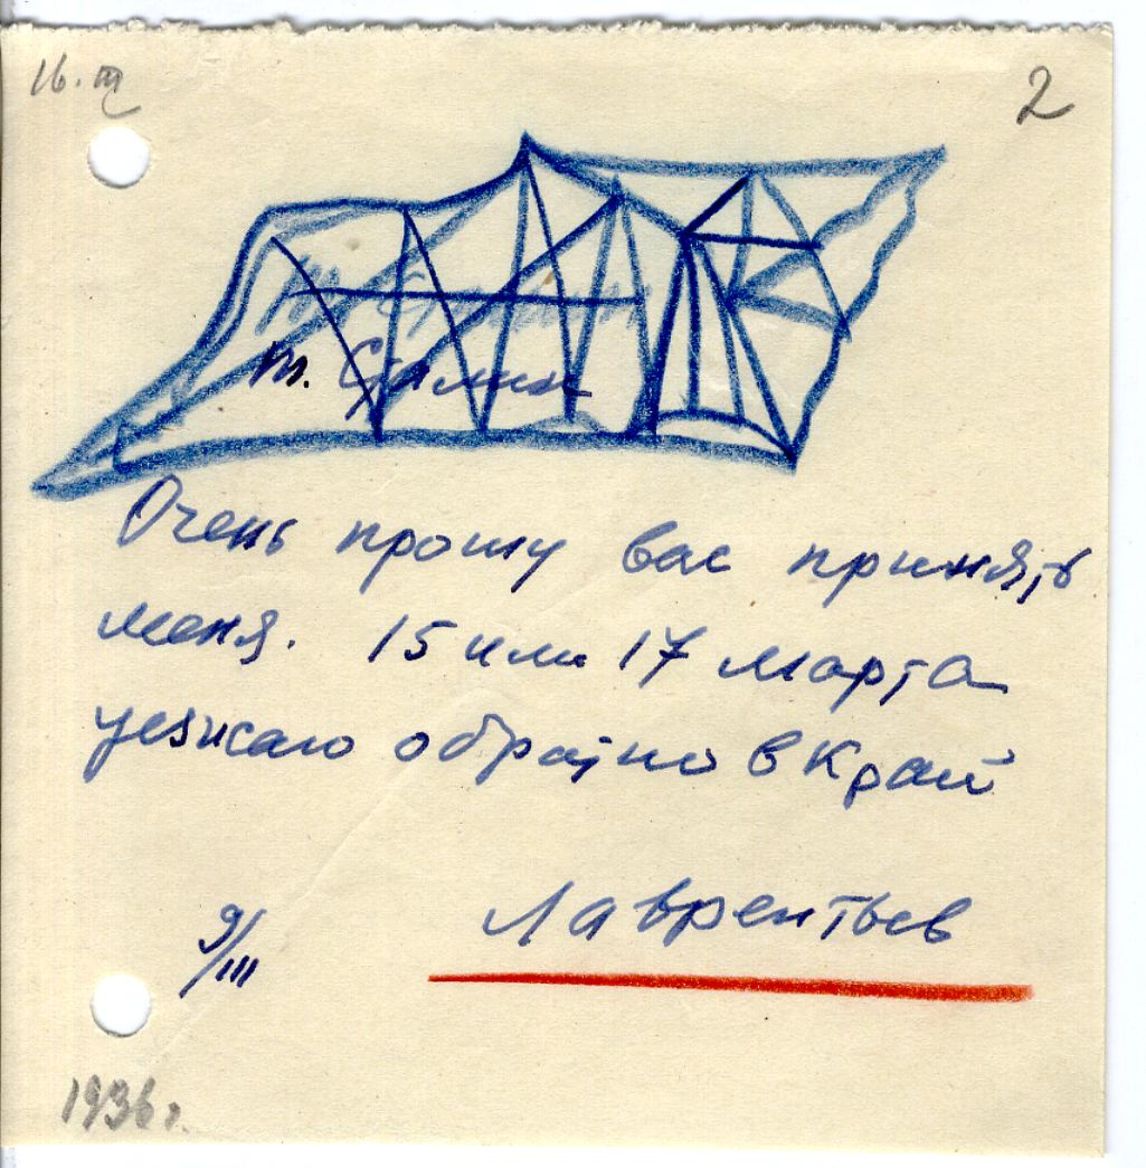 16.III
2
т. Сталин
Очень прошу вас принять
меня. 15 или 17 марта
уезжаю обратно в Край
Лаврентьев
9/III
1936г.